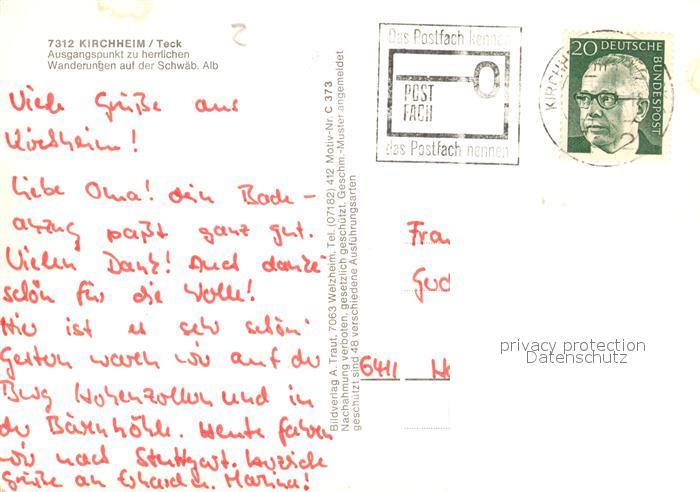 7312 KIRCHHEIM / Teck
Ausgangspunkt zu herrlichen
Wanderungen auf der Schwäb. Alb
2
Viele Grüße aus
Kirchheim!
Liebe Oma! dein Bade-
anzug paßt ganz gut.
Vielen Dank! Auch danke
schön für die Wolle!
Hier ist es sehr schön
Gestern waren wir auf der
Burg Hohenzollern und in
der Bärenhöhle. Heute fahren
wir nach Stuttgart. Herzliche
Grüße an Erhard u. Marina!
Bildverlag A. Traut, 7063 Welzheim, Tel. (07182) 412 Motiv-Nr. C 373
Nachahmung verboten, gesetzlich geschützt. Geschm.-Muster angemeldet
geschützt sind 48 verschiedene Ausführungsarten
Das Postfach kennen
POST
FACH
das Postfach nennen
KIRCHH
2
20 DEUTSCHE
BUNDESPOST
Frau
6411
privacy protection
Datenschutz